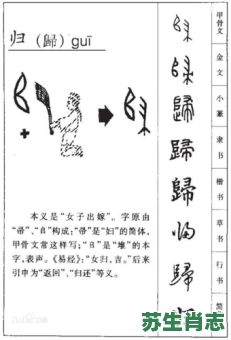 归 (歸) guī
本义是“女子出嫁”。字原由
“帚”,“𠂤”构成;“帚”是“妇”的简体,
甲骨文常这样写;“𠂤”是“堆”的本
字,表声。《易经》:“女归,吉。”后来
引申为“返回”、“归还”等义。
歸
歸
歸
甲骨文
金文
小篆
隶书
楷书
草书
行书
简
苏生肖志